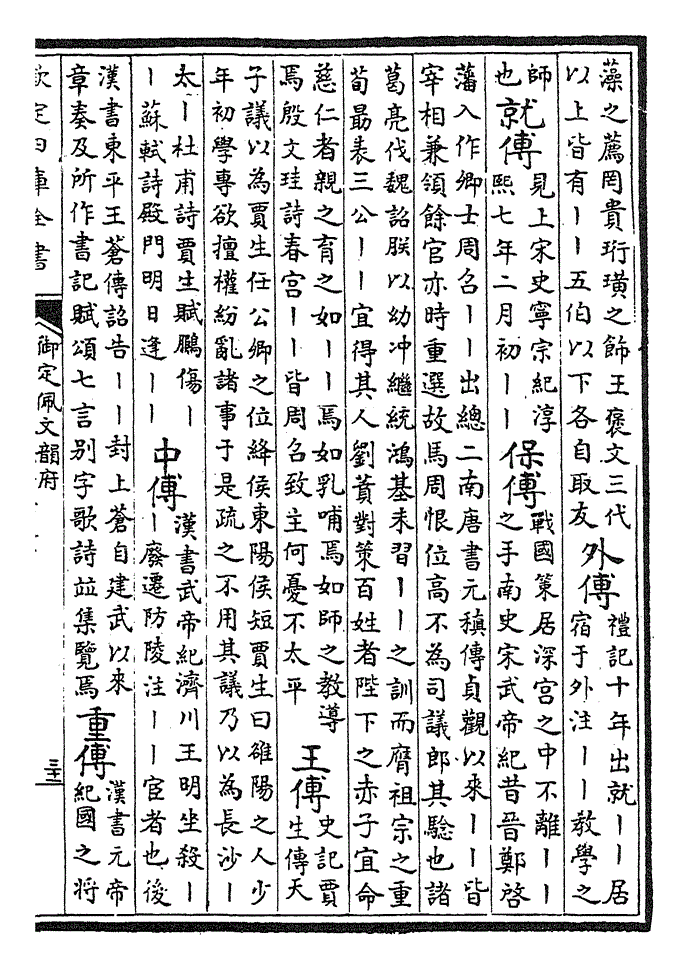 藻之薦罔貴珩璜之飾王褒文三代
以上皆有丨丨五伯以下各自取友
外傅
禮記十年出就丨丨居
宿于外注丨丨教學之
師
也
就傅
見上宋史寧宗紀淳
熙七年二月初丨丨
保傅
戰國策居深宫之中不離丨丨
之手南史宋武帝紀昔晉鄭啓
藩入作卿士周召丨丨出總二南唐書元稹傳貞觀以來丨丨皆
宰相兼領餘官亦時重選故馬周恨位高不為司議郎其驗也諸
葛亮伐魏詔朕以幼冲繼統鴻基未習丨丨之訓而膺祖宗之重
荀朂表三公丨丨宜得其人劉蕡對策百姓者陛下之赤子宜命
慈仁者親之育之如丨丨焉如乳哺焉如師之教導
焉殷文珪詩春宫丨丨皆周召致主何憂不太平
王傅
史記賈
生傳天
子議以為賈生任公卿之位絳侯東陽侯短賈生曰雒陽之人少
年初學專欲擅權紛亂諸事于是疏之不用其議乃以為長沙丨
太丨杜甫詩賈生賦鵩傷丨
丨蘇軾詩殿門明日逢丨丨
中傅
漢書武帝紀濟川王明坐殺丨
丨廢遷防陵注丨丨宦者也後
漢書東平王蒼傳詔告丨丨封上蒼自建武以來
章奏及所作書記賦頌七言别字歌詩竝集覽焉
重傅
漢書元帝
紀國之将
欽定四庫全書
御定佩文韻府
三十